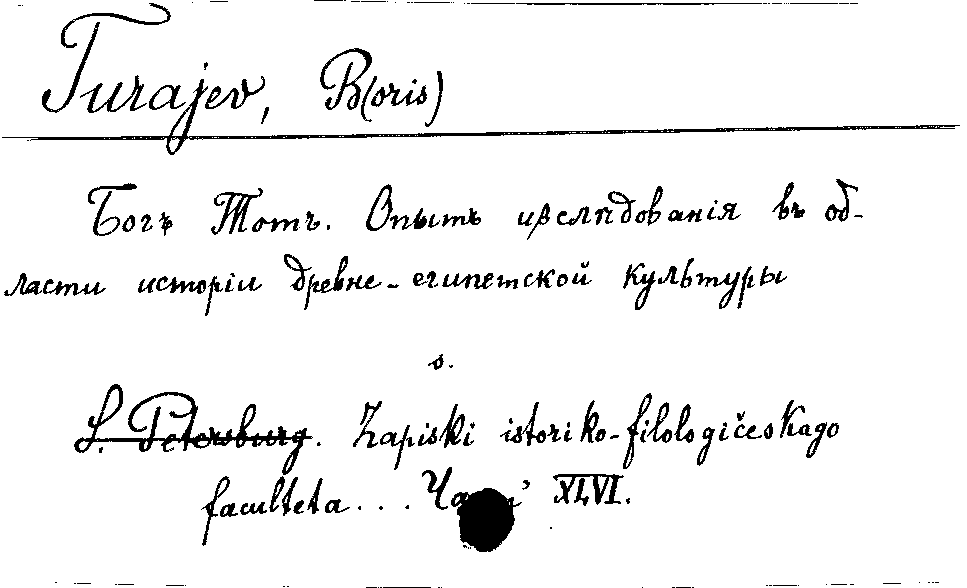 Turajev, B(oris)
Богъ Тотъ. Опытъ изслѣдованія въ об-
ласти исторіи древне-египетской культуры
s.
S. Petersburg. Zapiski istoriko-filologičeskago
faculteta... XLVI.